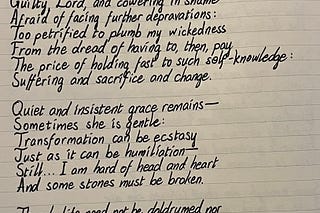 Guilty, Lord, and cowering in shame
Afraid of facing further depravations:
Too petrified to plumb my wickedness
From the dread of having to, then, pay
The price of holding fast to such self-knowledge:
Suffering and sacrifice and change.
Quiet and insistent grace remains—
Sometimes she is gentle:
Transformation can be ecstasy
Just as it can be humiliation—
Still... I am hard of head and heart
And some stones must be broken.
life need not be doldrumed nor